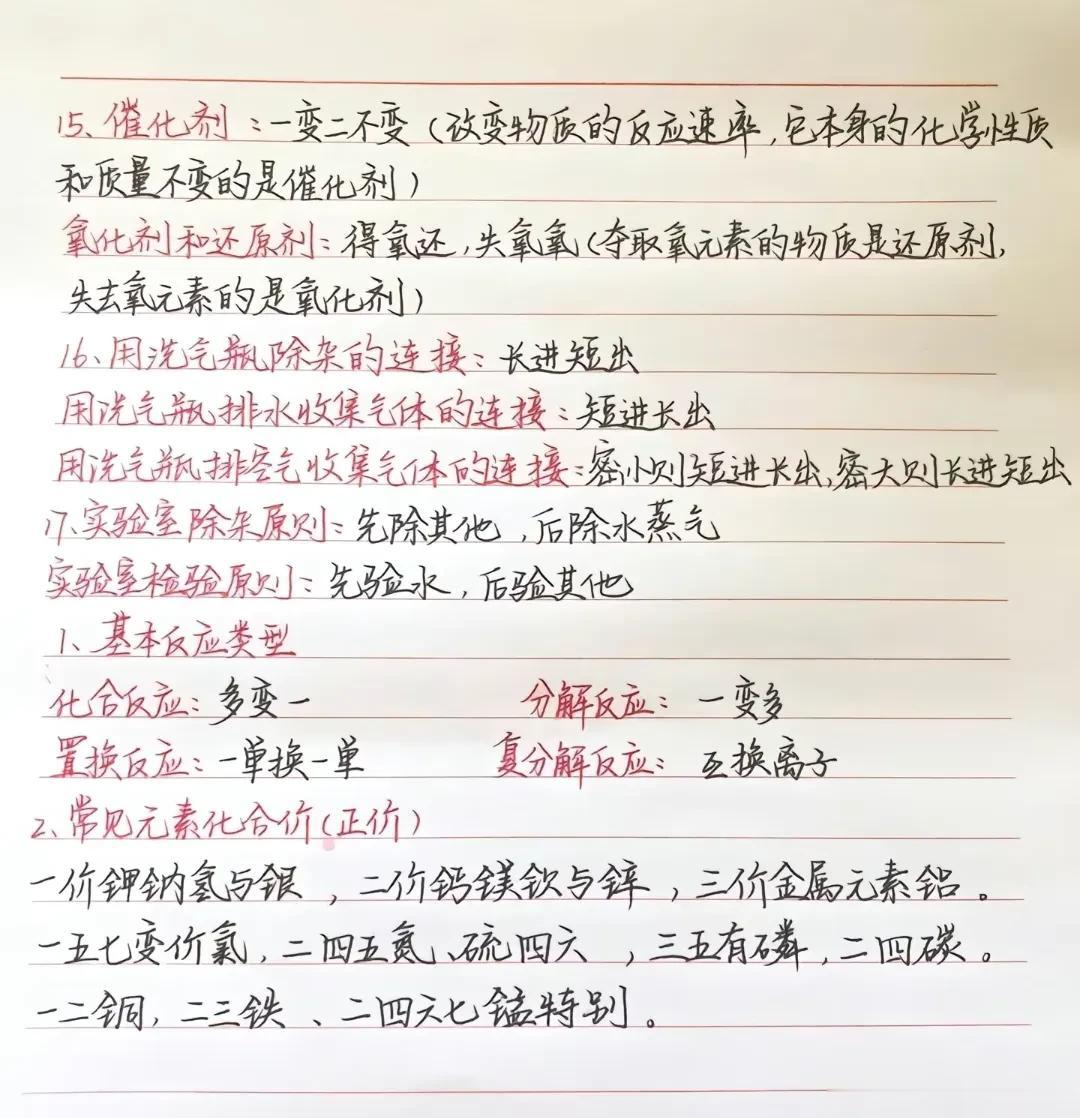 15、催化剂：一变二不变（改变物质的反应速率，它本身的化学性质
和质量不变的是催化剂）
氧化剂和还原剂：得氧还，失氧氧（夺取氧元素的物质是还原剂，
失去氧元素的是氧化剂）
16、用洗气瓶除杂的连接：长进短出
用洗气瓶排水收集气体的连接：短进长出
用洗气瓶排空气收集气体的连接：密小则短进长出，密大则长进短出
17、实验室除杂原则：先除其他，后除水蒸气
实验室检验原则：先验水，后验其他
1、基本反应类型
化合反应：多变一 分解反应：一变多
置换反应：一单换一单 复分解反应：互换离子
2、常见元素化合价（正价）
一价钾钠氢与银，二价钙镁钡与锌，三价金属元素铝。
一五七变价氯，二四五氮、硫四六，三五有磷，二四碳。
一二铜，二三铁、二四六七锰特别。